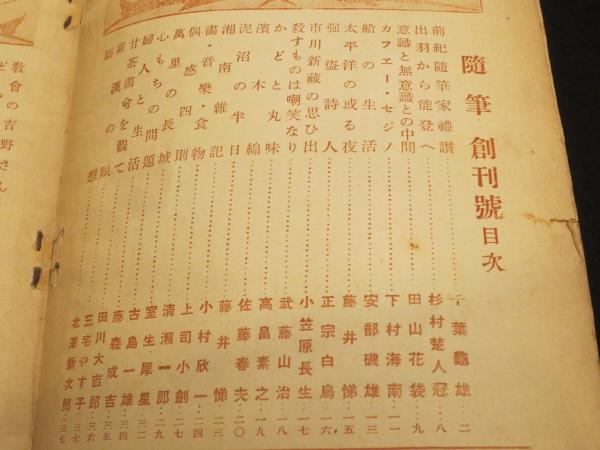 隨筆 創刊號 目次
前紀隨筆家禮讃……千葉龜雄…二
出羽から能登へ……杉村楚人冠…八
意識と無意識との中間……田山花袋…九
カフエー・セジノ……下村海南…一一
船の生活……安部磯雄…一三
太平洋の或る夜……藤井悌…一五
強盗詩人……正宗白鳥…一六
市川新蔵の思ひ出……小笠原長生…一七
殺すものは嘲笑なり……武藤山治…一八
かどと丸味……高畠素之…一九
濱木綿……佐藤春夫…二〇
泥沼の半日……藤井悌…二三
湘南雜記……小村欣一…二四
畵・音樂・食物……上司小劍…二七
偶感四則……清瀬一郎…二九
萬里の長城……室生犀星…三二
心もちの問題……古島一雄…三四
婦人と生活……藤森成吉…三五
甘茶畵命を觀て……田川大吉郎…三六
羅漢の……三宅やす子…三七
斷想……北澤新次郎…三七
教會の吉野さん